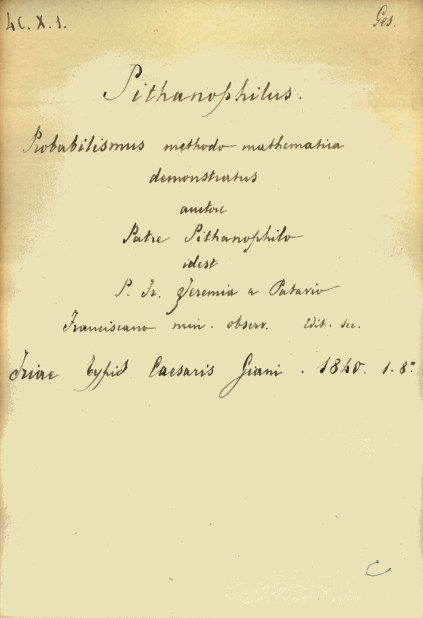 4C. X. 1. Ges.
Pithanophilus.
Probabilismus methodo mathematica
demonstratus
auctore
Patre Pithanophilo
idest
P. Fr. Jeremia a Patavio
Franciscano min. observ. Edit. sec.
typis Caesaris Giani. 1840. 1. 8°
C